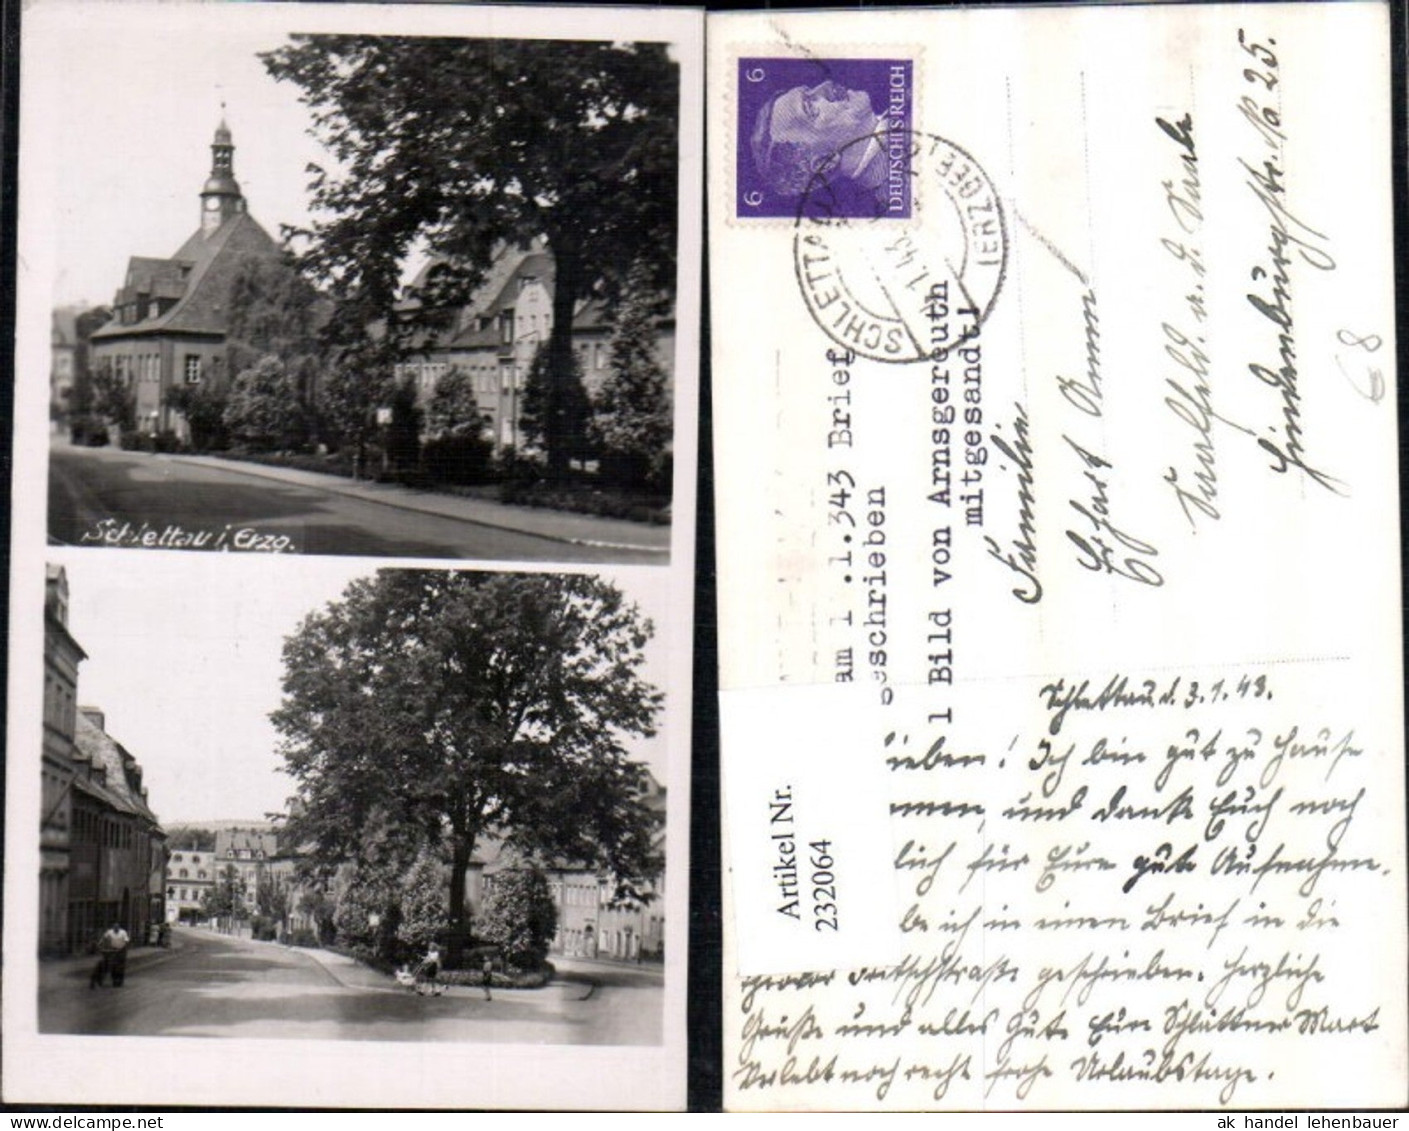 Schlettau i. Erzg.
6
6
DEUTSCHES REICH
SCHLETTAU
(ERZGEB)
1.1.43
am 1 .1.343 Brief
geschrieben
1 Bild von Arnsgereuth
mitgesandt!
Familie
Erhart
Saalfeld. a. d. Saale
Hindenburgstr. No 25.
68
Schlettau d. 3.1.43.
ieben! Ich bin gut zu Hause
mmen, und danke Euch noch
lich für Eure gute Aufnahme.
be ich in einen Brief in die
Fritschstraße geschrieben. Herzliche
Grüße und alles Gute Eure Schlettner
Verlebt noch recht frohe Urlaubstage.
Artikel Nr.
232064
ak handel lehenbauer